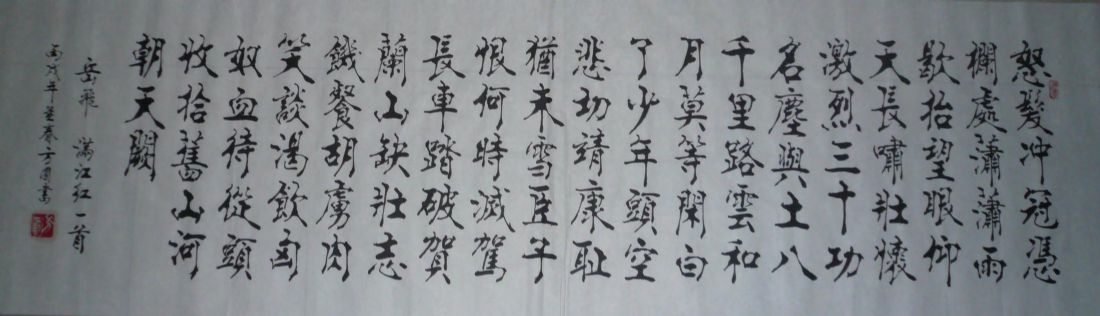 怒髮冲冠憑
欄處瀟瀟雨
歇抬望眼仰
天長嘯壯懷
激烈三十功
名塵與土八
千里路雲和
月莫等閑白
了少年頭空
悲切靖康耻
猶未雪臣子
恨何時滅駕
長車踏破賀
蘭山缺壯志
饑餐胡虜肉
笑談渴飲匈
奴血待從頭
收拾舊山河
朝天闕
岳飛 滿江紅 一首
丙戌年孟春 書